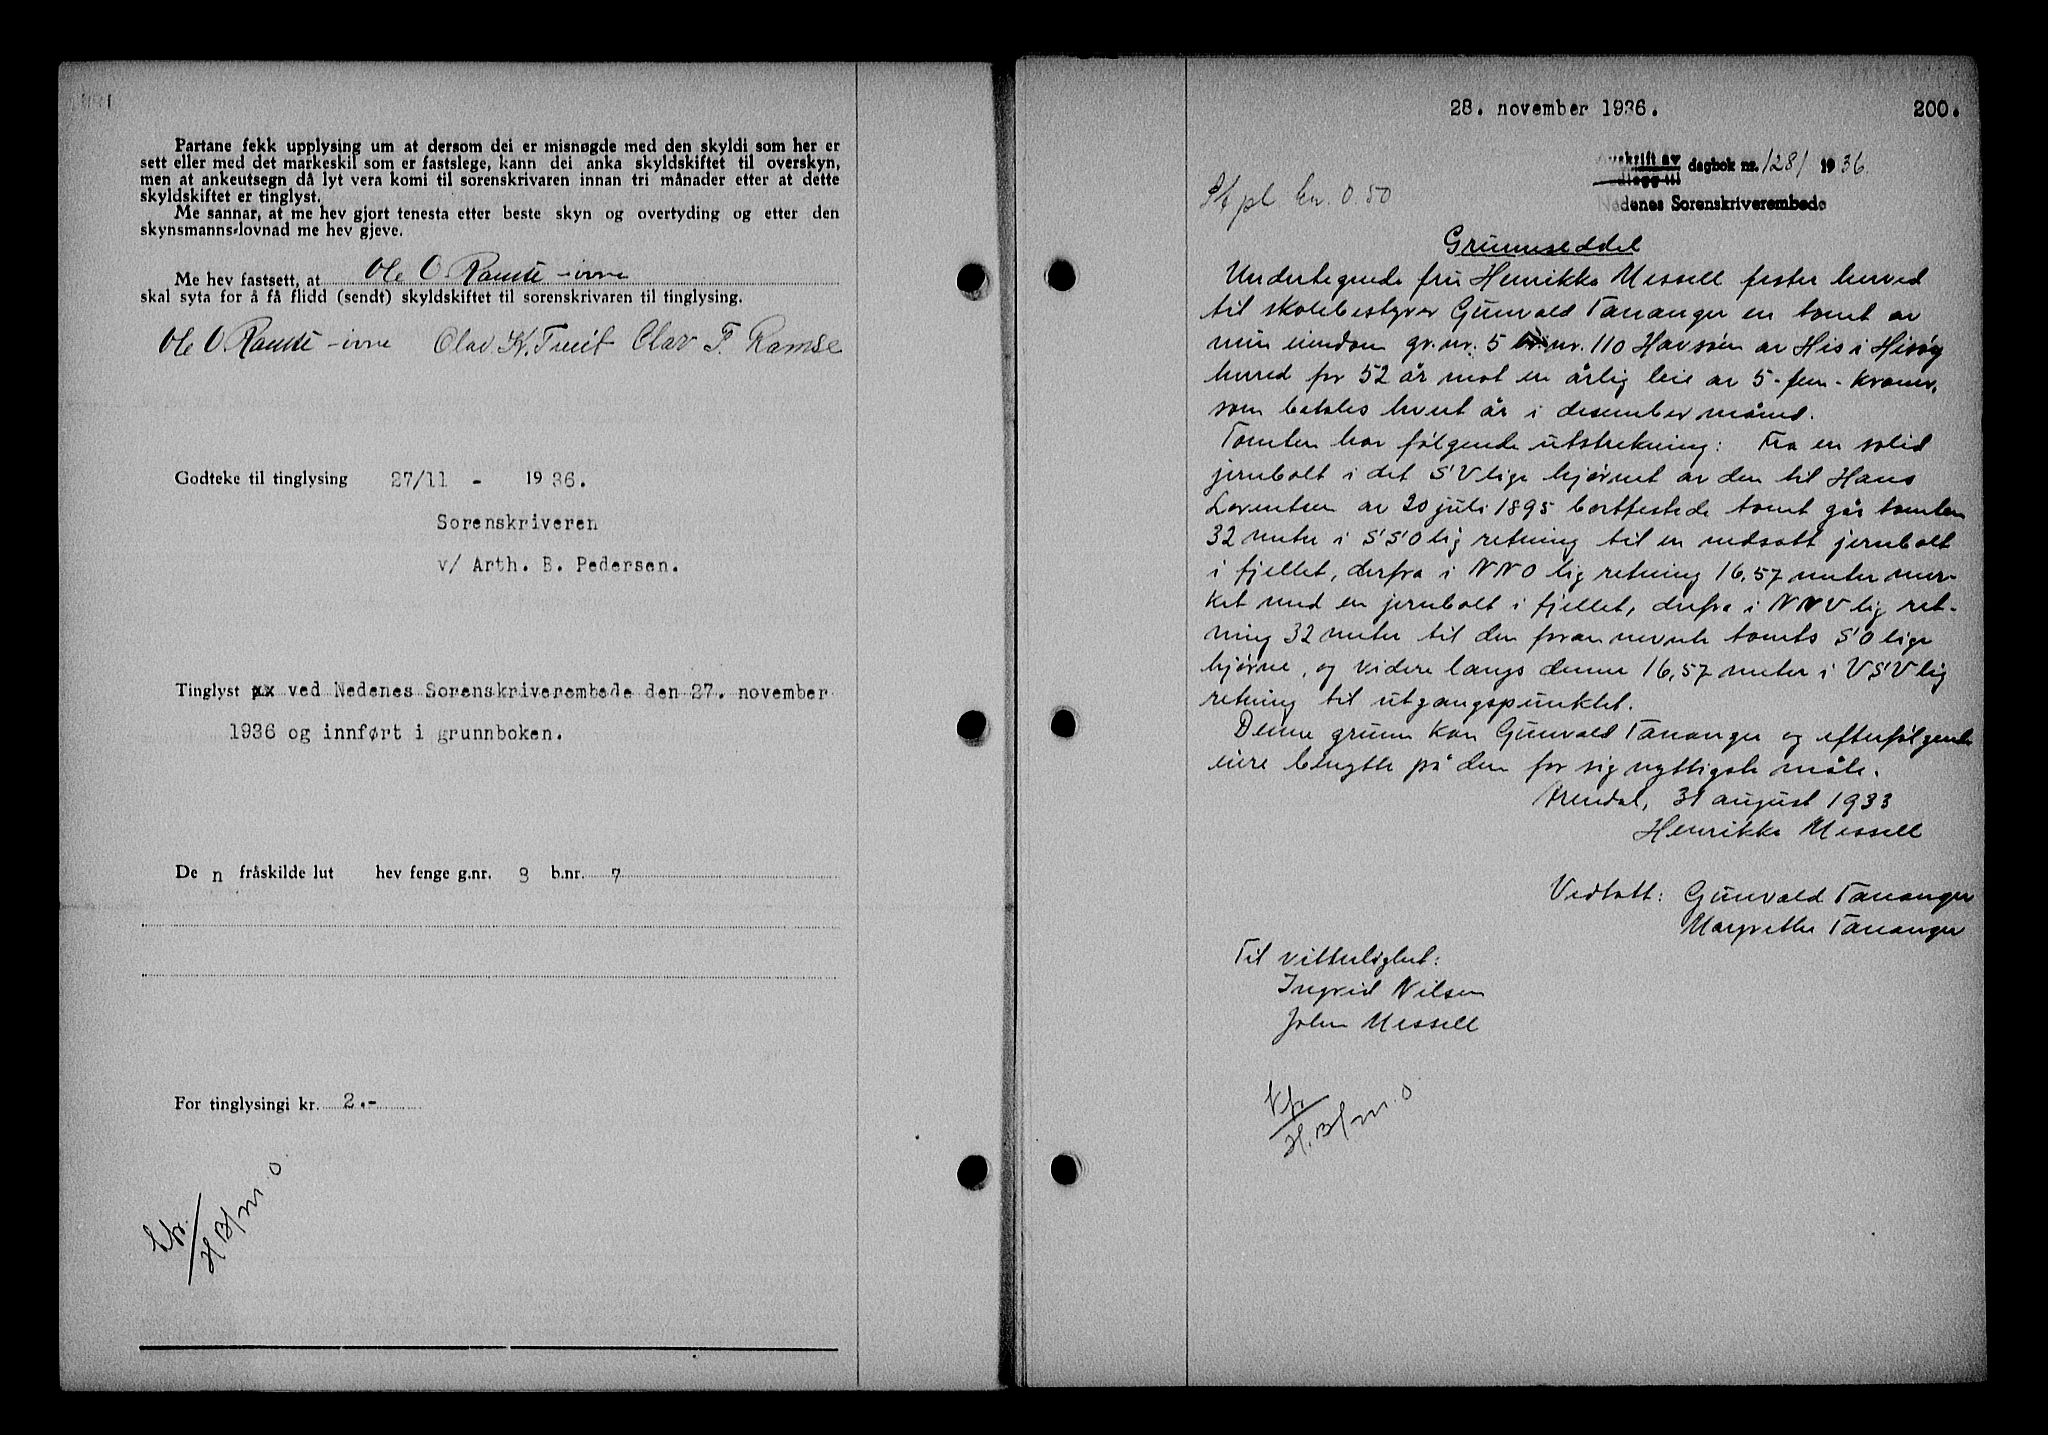 Partane fekk upplysing um at dersom dei er misnøgde med den skyldi som her er
sett eller med det markeskil som er fastslege, kann dei anka skyldskiftet til overskyn,
men at ankeutsegn då lyt vera komi til sorenskrivaren innan tri månader etter at dette
skyldskiftet er tinglyst.
Me sannar, at me hev gjort tenesta etter beste skyn og overtyding og etter den
skynsmanns-lovnad me hev gjeve.
Me hev fastsett, at Ole O. Ramse
skal syta for å få flidd (sendt) skyldskiftet til sorenskrivaren til tinglysing.
Ole O. Ramse Olav K. Tveit Olav T. Ramse
Godteke til tinglysing 27/11 - 1936.
Sorenskriveren
v/ Arth. B. Pedersen.
Tinglyst xx ved Nedenes Sorenskriverembede den 27. november
1936 og innført i grunnboken.
De n fråskilde lut hev fenge g.nr. 8 b.nr. 7
For tinglysingi kr. 2.-
28. november 1936. 200.
Avskrift av dagbok nr. 1281 1936.
Nedenes Sorenskriverembede
Stpl kr. 0.50
Grunnseddel
Undertegnede fru Henrikke Messell fester herved
til skolebestyrer Gunvald Tananger en tomt av
min eiendom gr.nr. 5 br.nr. 110 Havsøen av His i Hisøy
herred for 52 år mot en årlig leie av 5 - fem - kroner,
som betales hvert år i desember måned.
Tomten har følgende utstrekning: Fra en solid
jernbolt i det SVlige hjørnet av den til Hans
Lorentsen av 20 juli 1895 bortfestede tomt går tomten
32 meter i SSOlig retning til en nedsatt jernbolt
i fjellet, derfra i NNOlig retning 16,57 meter mer-
ket med en jernbolt i fjellet, derfra i NNVlig ret-
ning 32 meter til den foran nevnte tomts SOlige
hjørne, og videre langs denne 16,57 meter i VSVlig
retning til utgangspunktet.
Denne grunn kan Gunvald Tananger og efterfølgende
eiere benytte på den for sig nyttigste måte.
Arendal, 31 august 1933
Henrikke Messell
Vedtatt: Gunvald Tananger
Margrethe Tananger
Til vitterlighet:
Ingrid Nilsen
John Messell